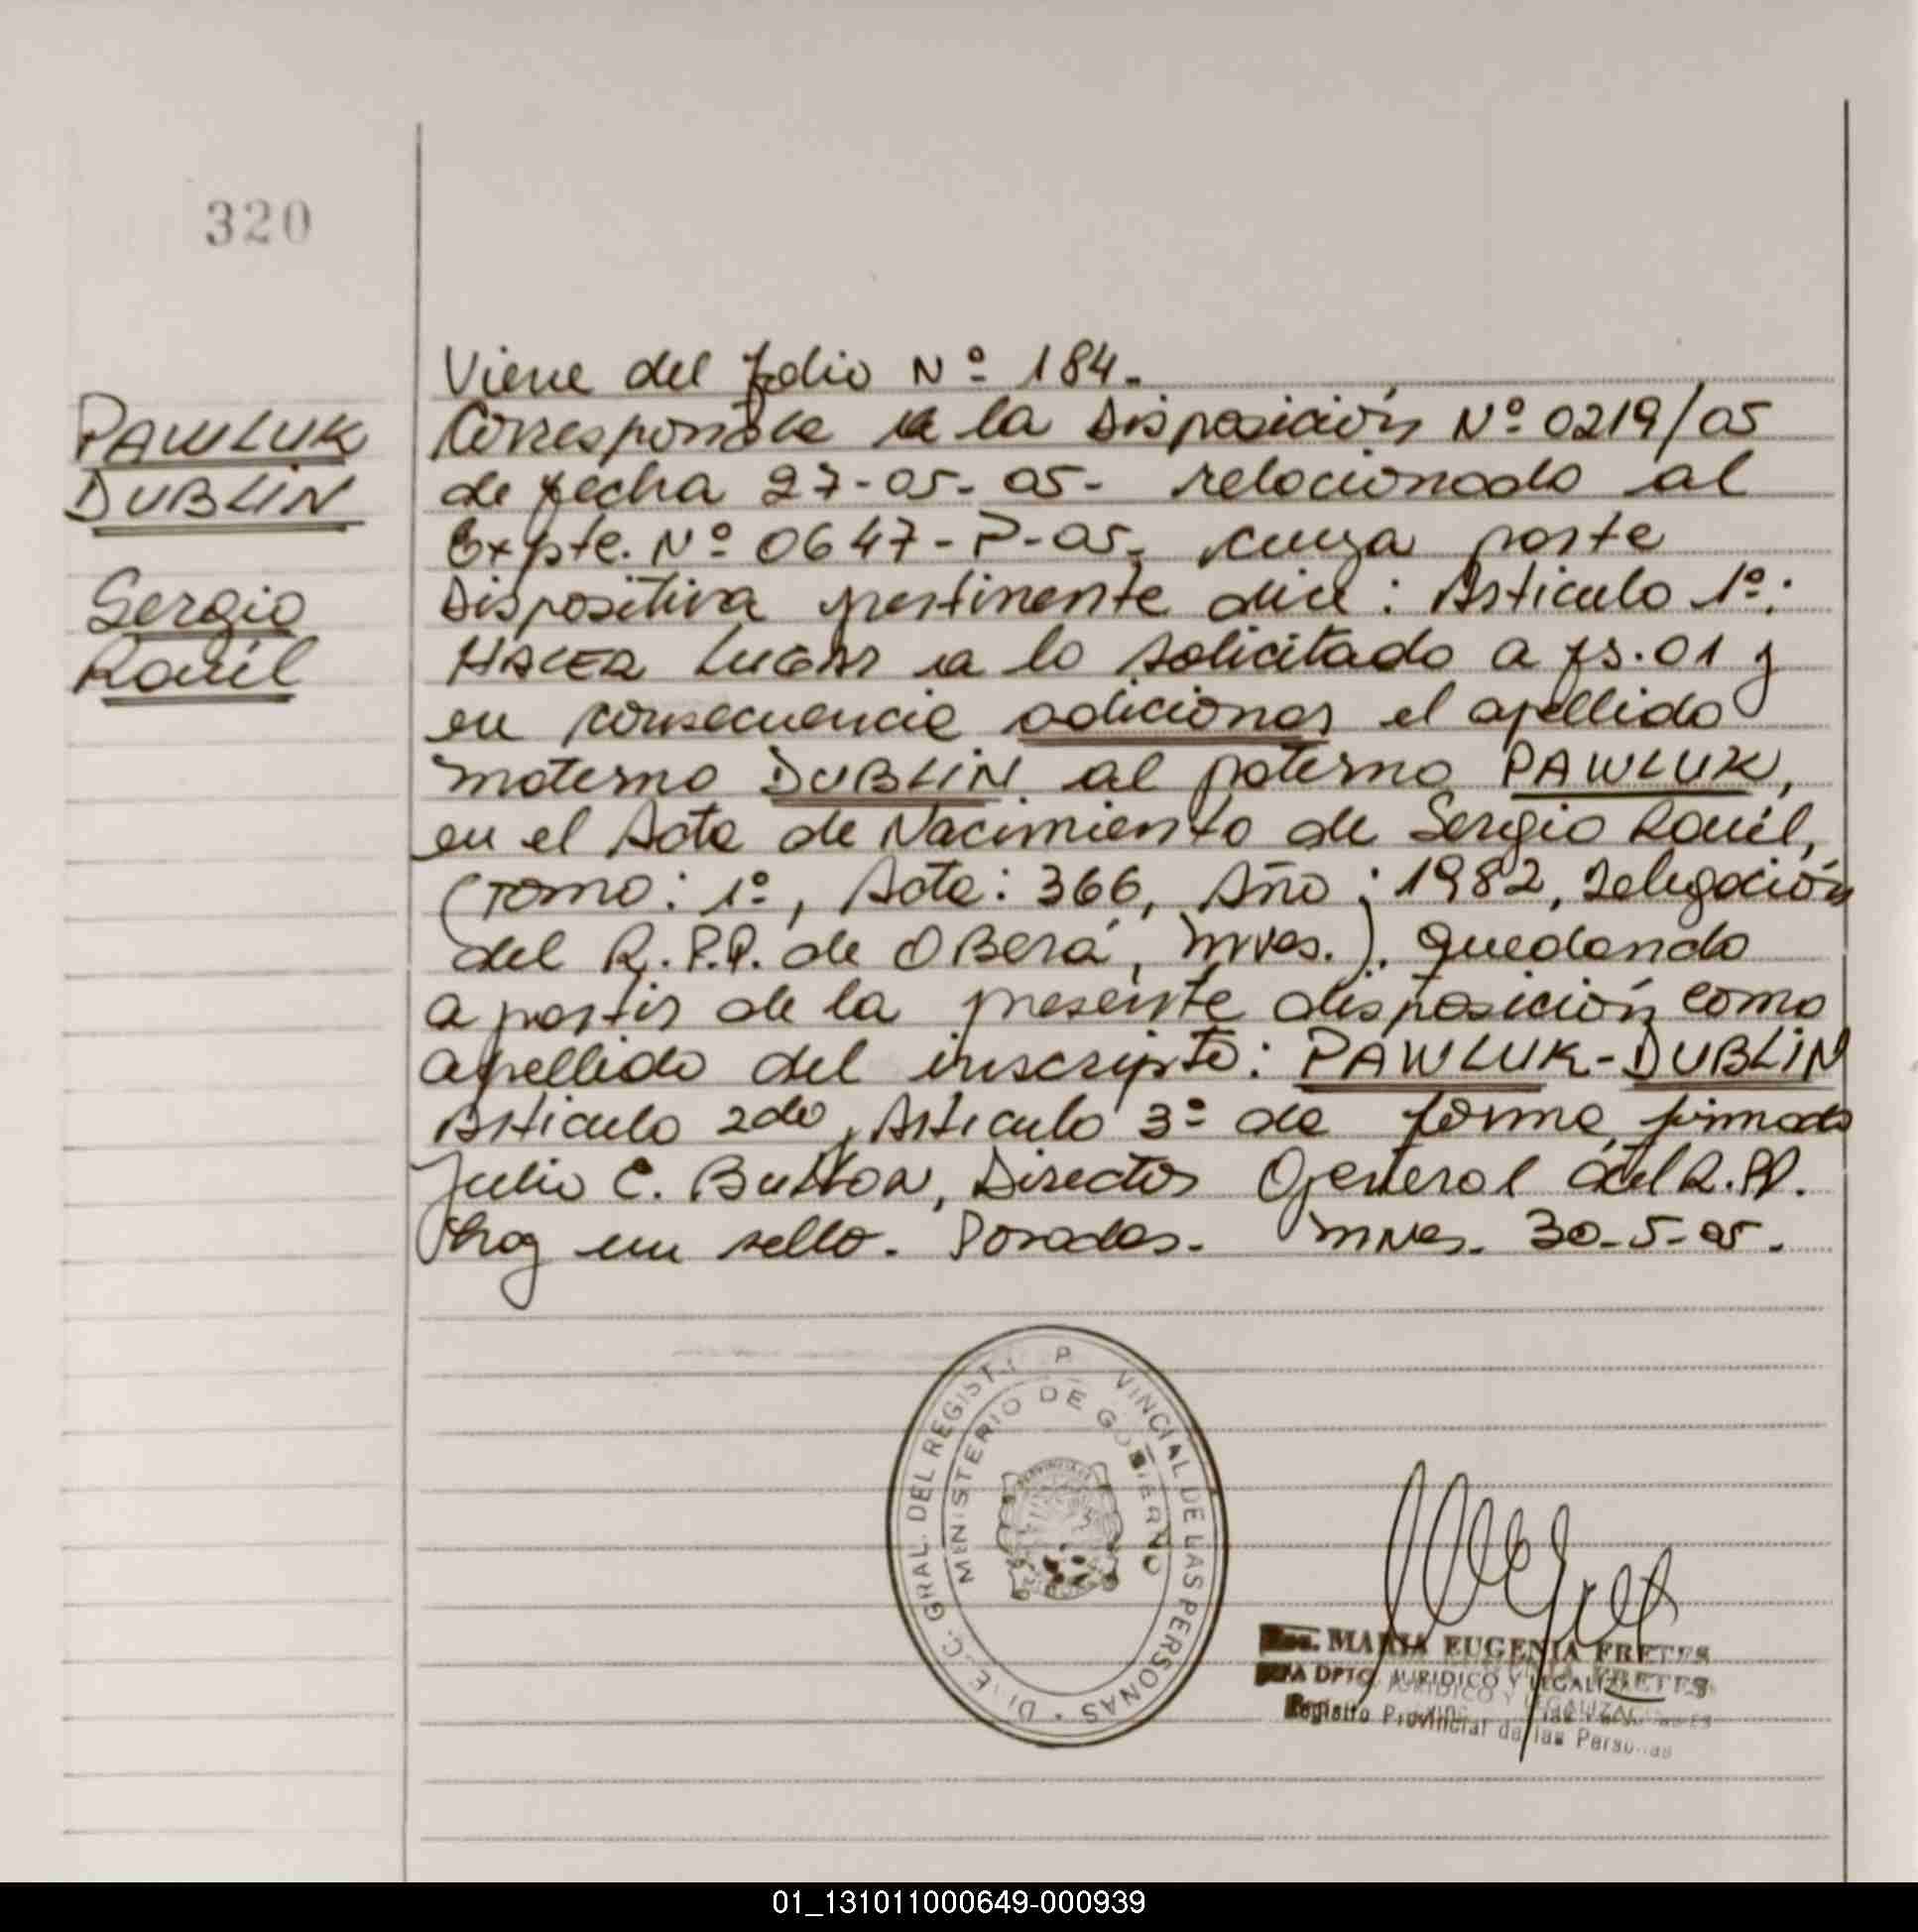 320
PAWLUK
DUBLIN
Sergio
Raúl
Viene del folio Nº 184.
Corresponde a la Disposición Nº 0219/05
de fecha 27-05-05- relacionado al
Expte. Nº 0647-P-05, cuya parte
Dispositiva pertinente dice: Articulo 1º:
HACER LUGAR a lo solicitado a fs. 01 y
en consecuencia adicionar el apellido
materno DUBLIN al paterno PAWLUK,
en el Acta de Nacimiento de Sergio Raúl,
(Tomo: 1º, Acta: 366, Año: 1982, Delegación
del R.P.P. de OBerá, Mnes.). quedando
a partir de la presente disposición como
apellido del inscripto: PAWLUK-DUBLIN
Articulo 2do, Articulo 3º de forma, firmado
Julio C. Director General del R.PP.
Hay un sello. Posadas. Mnes. 30-5-05.
GRAL. DEL REGIST P VINCIAL DE LAS PERSONAS
MINISTERIO DE GOBIERNO
MARIA EUGENIA FRETES
DPTO. JURIDICO Y LEGALIZA
Registro Provincial de las Personas
01_131011000649-000939